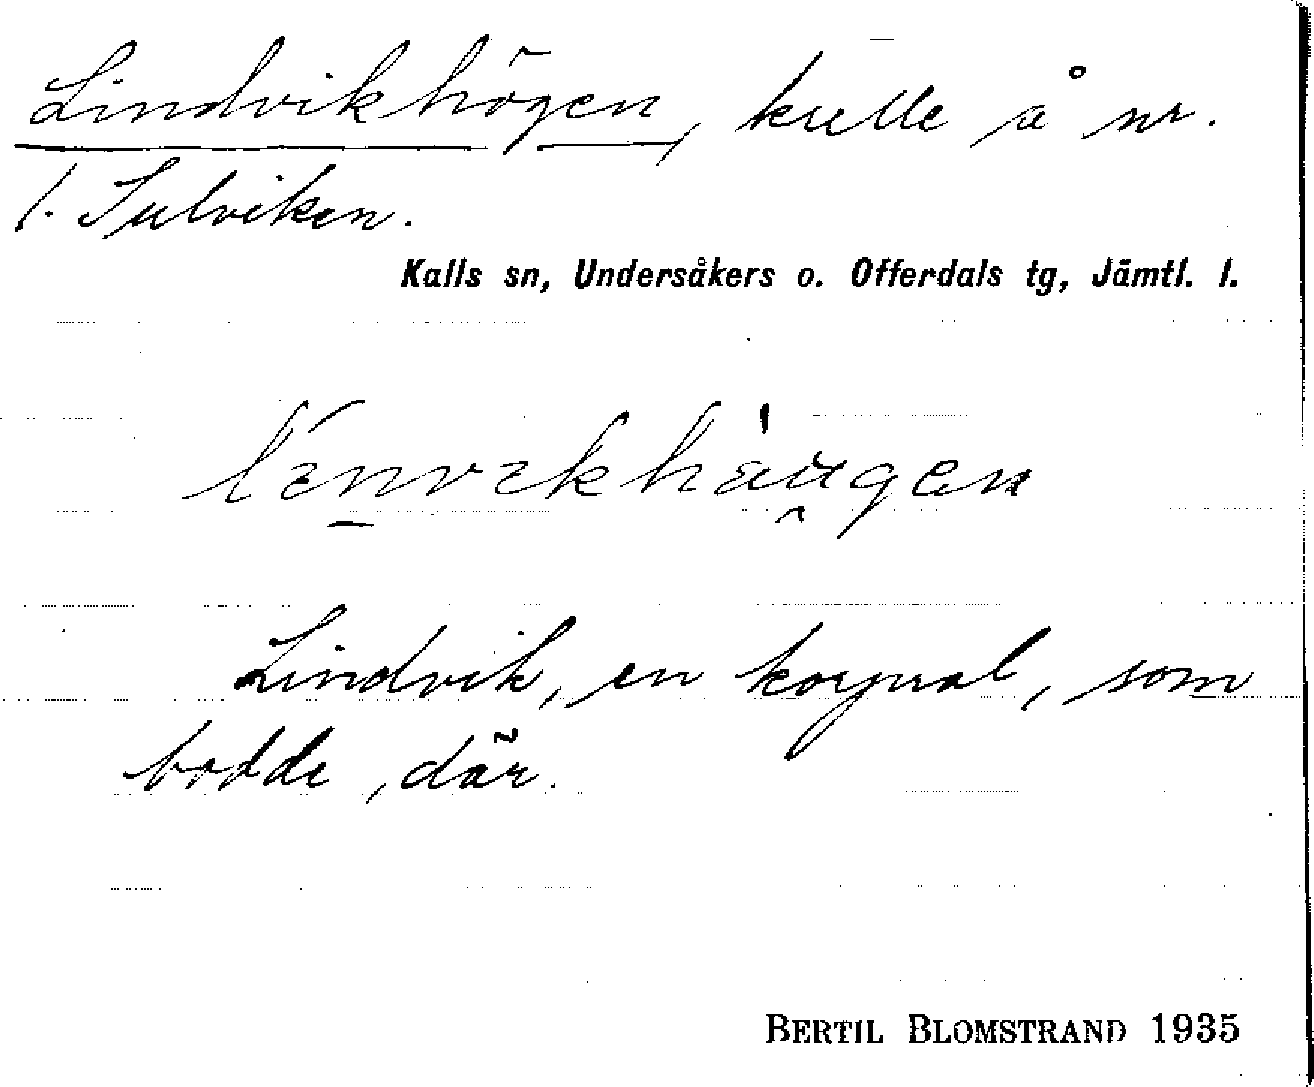 Lindvikhögen, kulle å nr.
1. Sulviken.
Kalls sn, Undersåkers o. Offerdals tg, Jämtl. l.
Lindvik, en korpral, som
bodde, där.
BERTIL BLOMSTRAND 1935